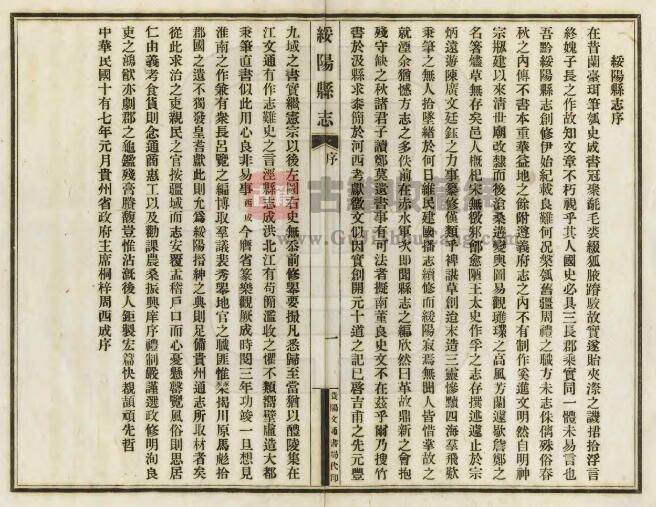 綏陽縣志序
在昔蘭臺珥筆瓠史成書冠聚毳毛裘綴狐腋踳駮故實遂貽夾漈之譏捃拾浮言
終媿子長之作故知文章不朽視乎其人國史必具三長郡乘實同一體未易言也
吾黔綏陽縣志創修伊始紀載良難何況槃瓠舊疆周禮之職方未志侏儷殊俗春
秋之內傳不書本重華益地之餘附遵義府志之內有制作奚進文明然自明神
宗剏建以來清世廟改隸而後滄桑迭變輿圖易觀璡璞之高風芳蘭遽歇詹鄭之
名箸燼草無存矣邑人概杞宋無徵邪郃愈陋王太史作孚之志存撰述遽止於宗
炳遠游陳廣文廷鈺之力事纂修僅類乎裨諶草創迨末造三靈慘黷四海羣飛歎
秉筆之無人拾墜緒於何日維民建國播志續修而綏陽寂焉無聞人皆惜掌故之
就湮余猶憾方志之多佚前在赤水軍次即聞縣志之編欣然曰革故鼎新之會抱
殘守缺之秋諸君子讀鄭莫遺書事有可法者擬南董良史文不在茲乎爾乃搜竹
書於汲縣求泰簡於河西考獻徵文似因實創開元十道之記已啓吉甫之先元豐
綏陽縣志
序
一
貴陽文通書局代印
九域之書實繼憲宗以後左圖右史無忝前修舉要撮凡悉歸至當猶以醴陵集在
江文通有作志難史之言涇縣志成洪北江有苟簡濫收之懼不類嚮壁虛造大都
秉筆直書似此用心良非易事西成今膺省篆樂觀厥成時閱三年功竣一旦想見
淮南之作兼有衆長呂覽之編博取羣議裴秀舉地官之職匪惟禁揭川原馬彪拾
郡國之遺不獨發皇耆獻此則允爲綏陽搢紳之典則足備貴州通志所取材者矣
從此求治之吏親民之官按疆域而志安覆盂稽戶口而心憂懸磬覽風俗則思居
仁由義考食貨則念通商惠工以及勸課農桑振興庠序禮制嚴謹選政修明洵良
吏之鴻猷亦劇郡之龜鑑殘膏賸馥豈惟沾溉後人鉅製宏篇快覩頡頏先哲
中華民國十有七年元月貴州省政府主席桐梓周西成序